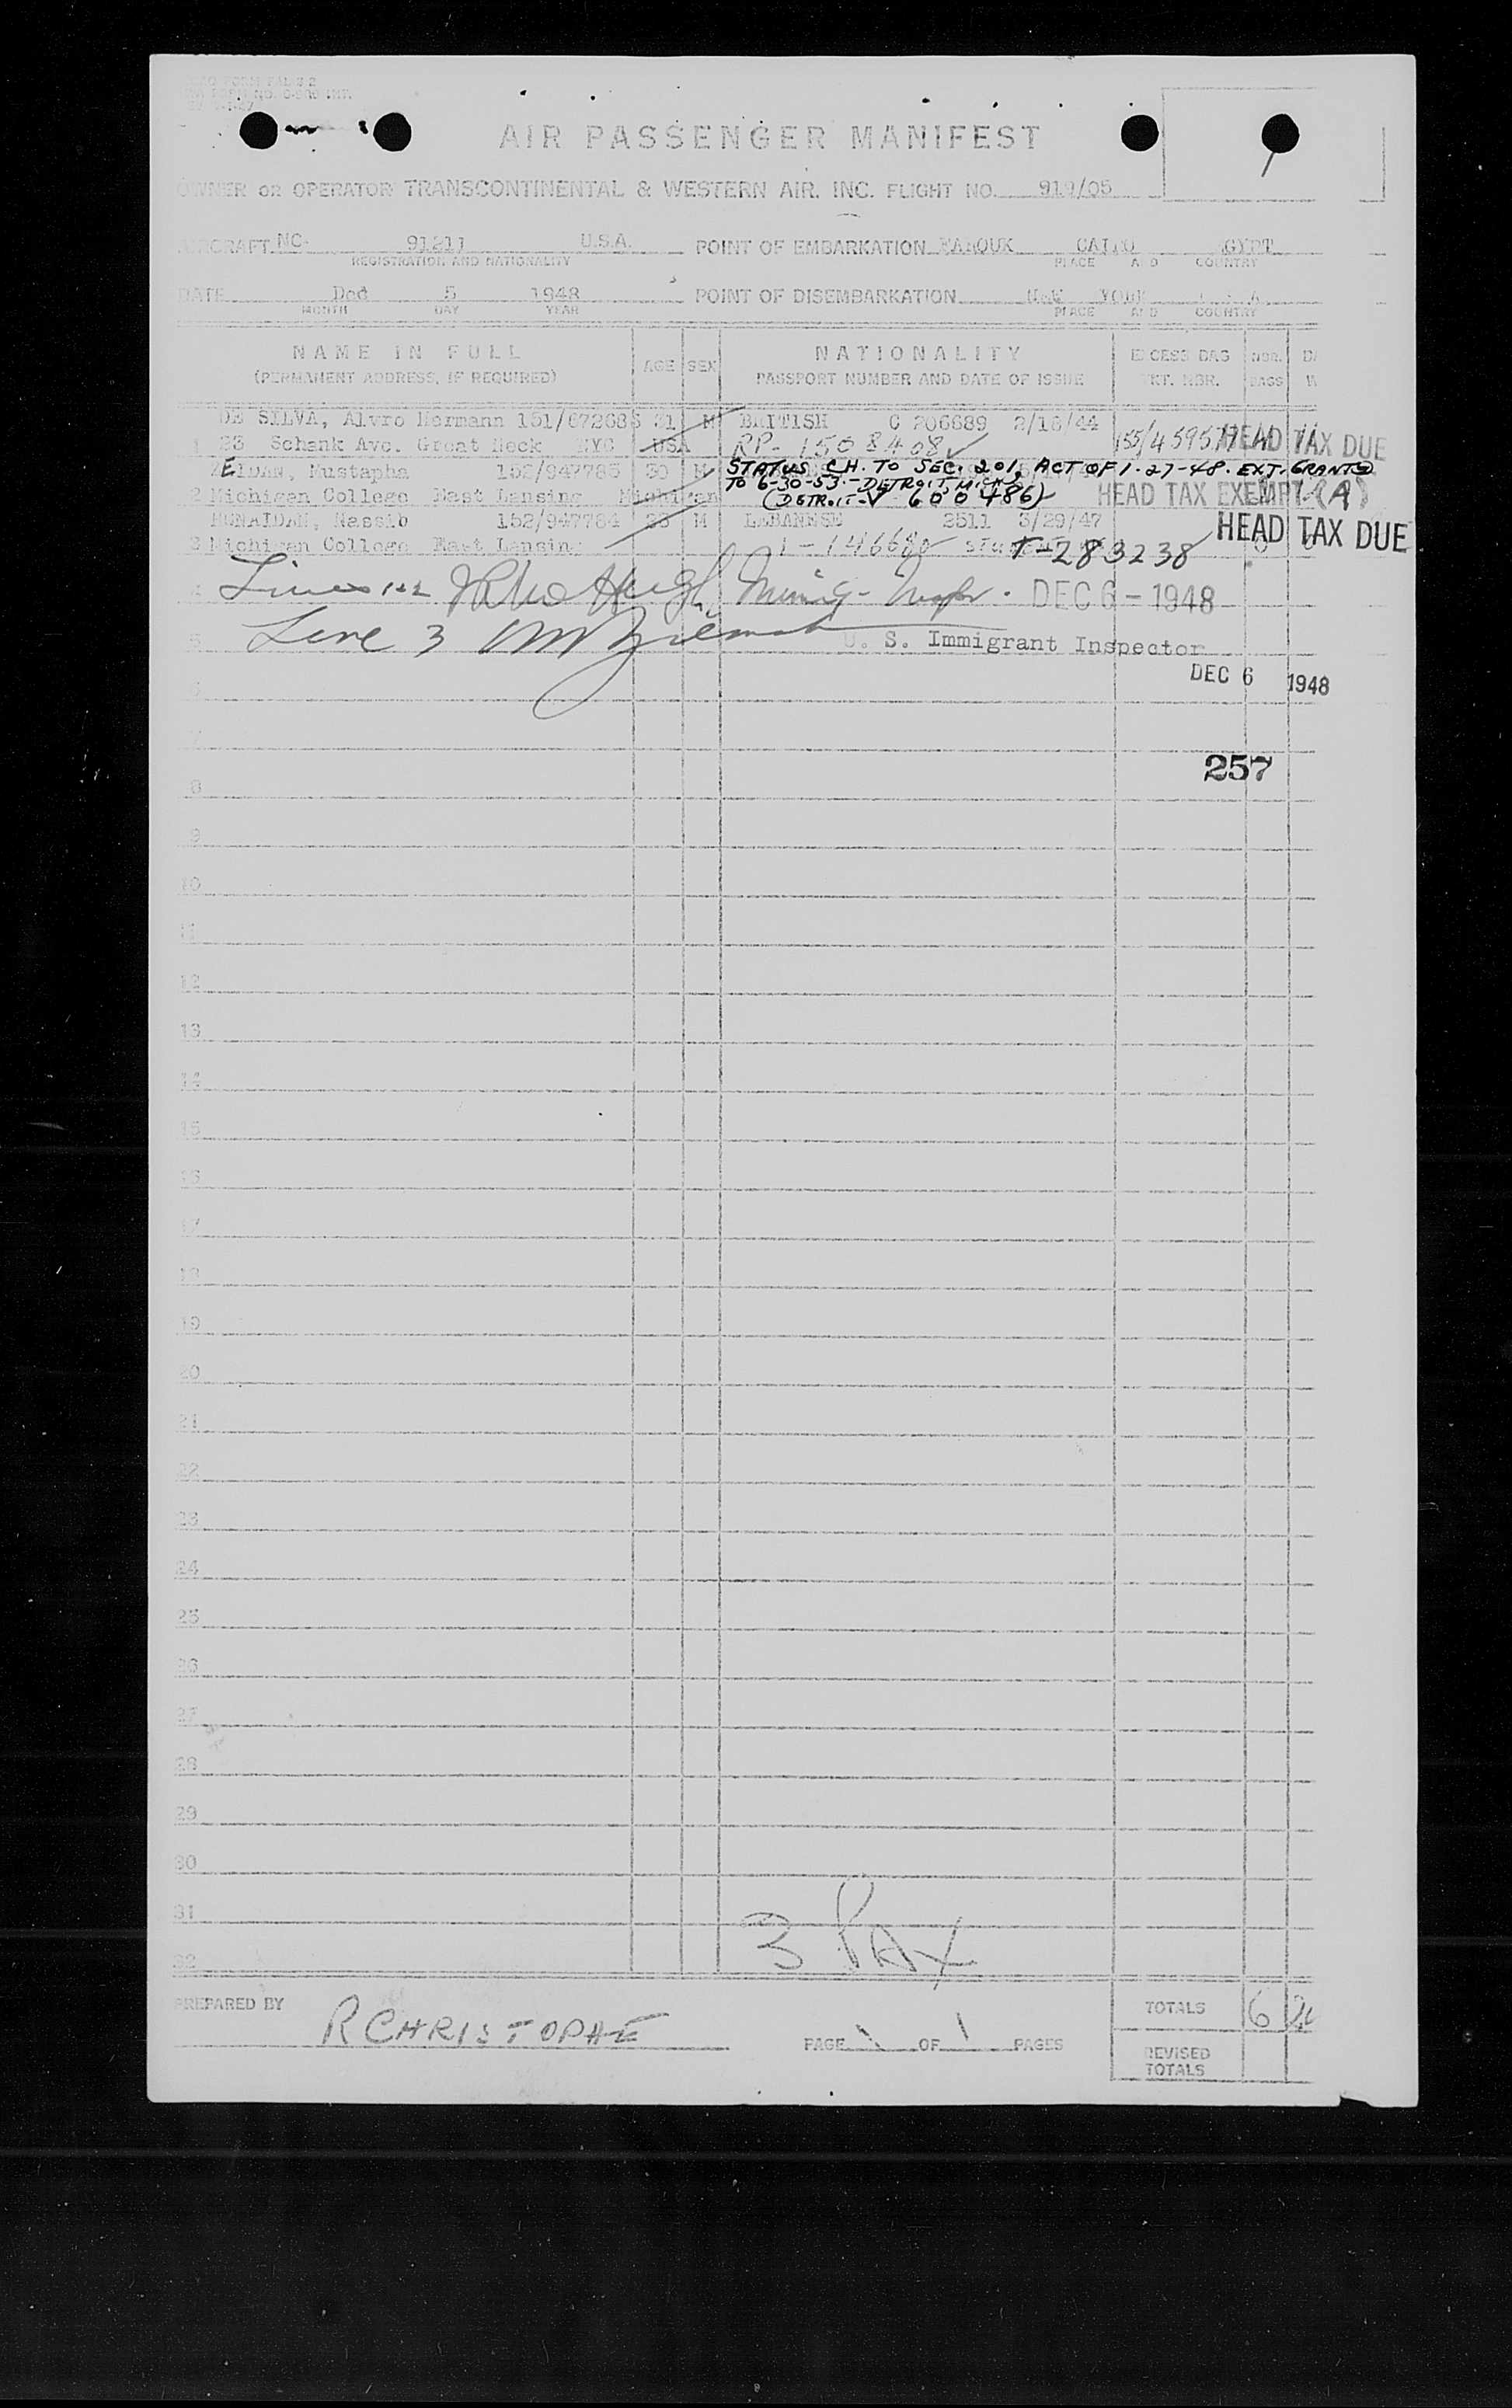 AIR PASSENGER MANIFEST
OWNER OR OPERATOR TRANSCONTINENTAL & WESTERN AIR, INC. FLIGHT NO. 919/05
AIRCRAFT NC- 91211 U.S.A. POINT OF EMBARKATION FAROUK CAIRO EGYPT
REGISTRATION AND NATIONALITY PLACE AND COUNTRY
DATE Ded 5 1948 POINT OF DISEMBARKATION NEW YORK
MONTH DAY YEAR PLACE AND COUNTRY
NAME IN FULL AGE SEX NATIONALITY EXCESS BAG NBR.
(PERMANENT ADDRESS, IF REQUIRED) PASSPORT NUMBER AND DATE OF ISSUE TKT. NBR. BAGS
DE SILVA, Alvro Hermann 151/672685 31 M BRITISH C 206689 2/18/44
1 23 Schenk Ave. Great Neck NYC USA RP- 1508408 HEAD TAX DUE
ZEIDAN, Mustapha 152/947783 30 M STATUS CH. TO SEC. 201, ACT OF 1-27-48. EXT. GRANTED
TO 6-30-53.-DETROIT, MICH.
2 Michigan College East Lansing Michigan (DETROIT-V 600486) HEAD TAX EXEMPT (A)
Nassib 152/947784 23 M LEBANESE 2511 3/29/47
3 Michigan College East Lansing 1-146680 T-283238 HEAD TAX DUE
4 Lines 1+2 DEC 6 - 1948
5 Line 3 U. S. Immigrant Inspector
DEC 6 1948
6
7
257
8
9
10
11
12
13
14
15
16
17
18
19
20
21
22
23
24
25
26
27
28
29
30
31
3 PAX
32
PREPARED BY R CHRISTOPHE PAGE 1 OF 1 PAGES TOTALS 6
REVISED
TOTALS